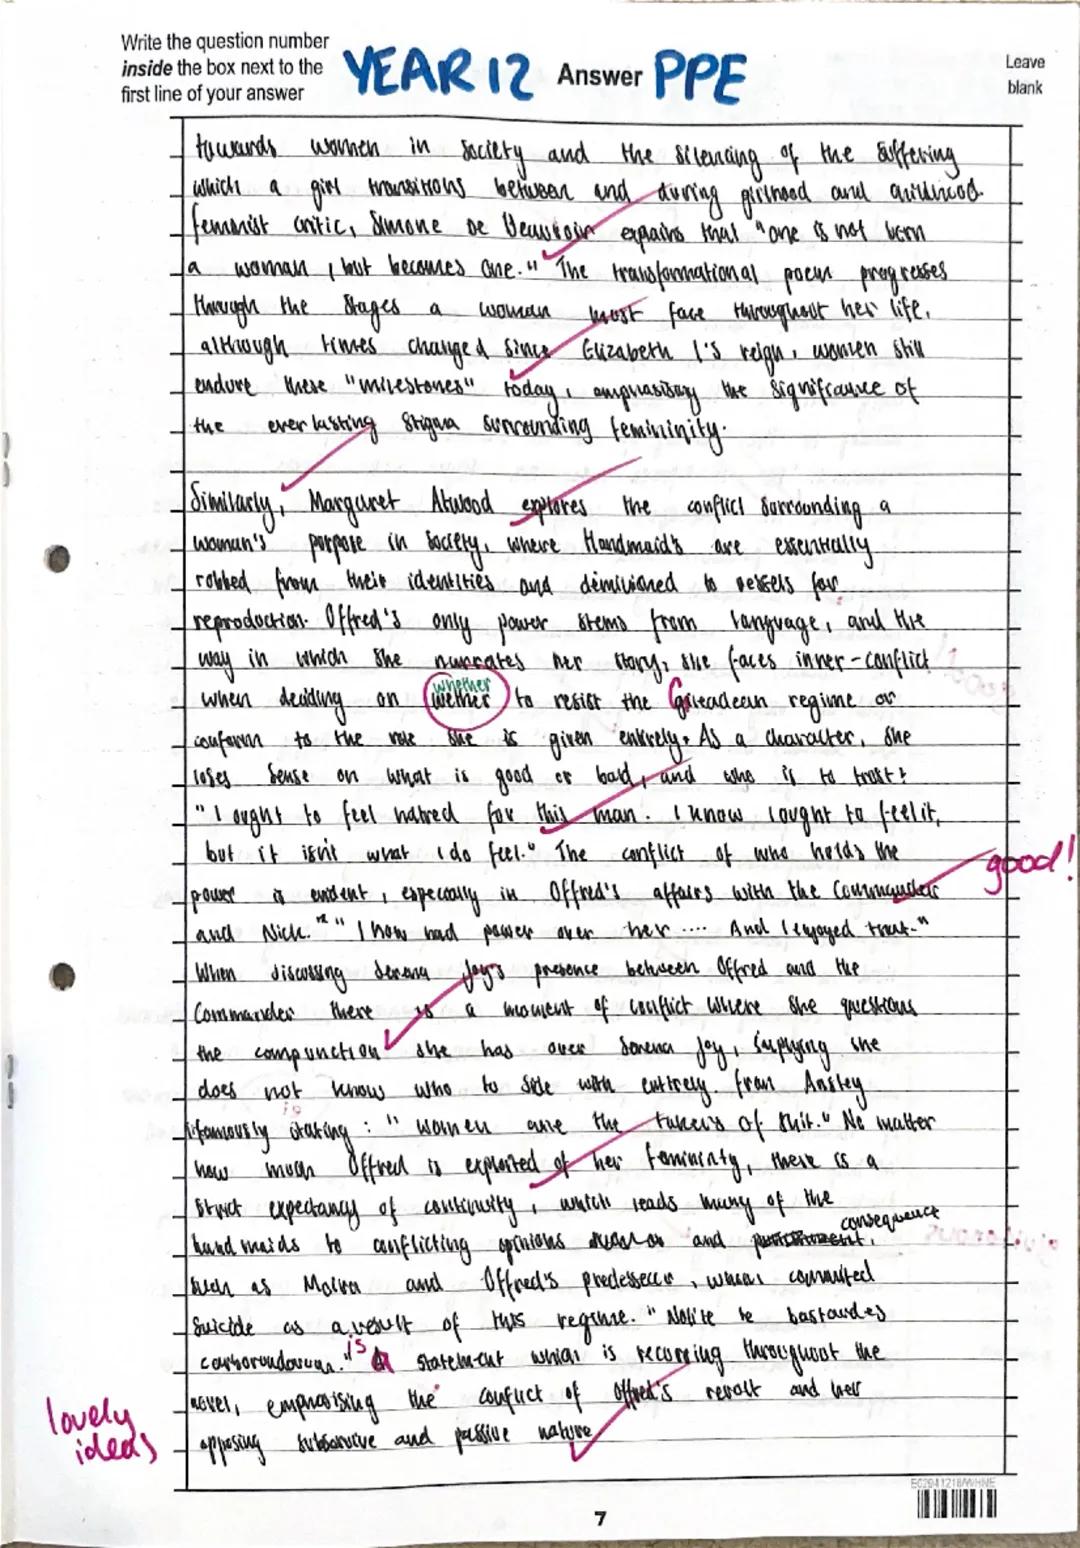 Write the question number
inside the box next to the
first line of your answer
YEAR 12 Answer PPE
Leave
blank
towards women in society and the silencing of the suffering
which a girl transitions between and during girlhood and
feminist critic, Simone De Beauvoir explains that "one is not born
a woman, but becomes one." The transformational poem progresses
through the stages a woman must face throughout her life,
although times changed since Elizabeth I's reign, women still
endure these "milestones" today, emphasising the significance of
the everlasting stigma surrounding femininity.
Similarly, Margaret Atwood explores the conflict surrounding a
woman's purpose in society, where Handmaid's are essentially
robbed from their identities and to vessels for
reproduction. Offred's only power stems from language, and the
way in which she narrates her story, she faces inner-conflict
whether
when deciding on wether to resist the Gileadean regime or
conform to the role she is given entirely. As a character, she
loses sense on what is good or bad, and who is to trust:
"I ought to feel hatred for this man. I know I ought to feel it,
but it isn't what I do feel." The conflict of who holds the
good!
power is evident, especially in Offred's affairs with the Commander
and Nick. "I now had power over her .... And I enjoyed that."
When discussing Serena Joy's presence between Offred and the
Commander there is a moment of conflict where she questions
the compunction she has over Serena Joy, implying she
does not know who to side with entirely from Anstey
is
famously stating: "women are the takers of shit." No matter
how much Offred is exploited of her femininty, there is a
strict expectancy of continuity, which leads many of the
consequence
handmaids to conflicting opinions and
such as Moira and Offred's predessecer, whom commited
suicide as a result of this regime. "Nolite te bastardes
carborundorum." is a statement which is recurring throughout the
novel, emphasising the conflict of Offred's revolt and her
lovely
ideas
opposing subservive and passive nature
7